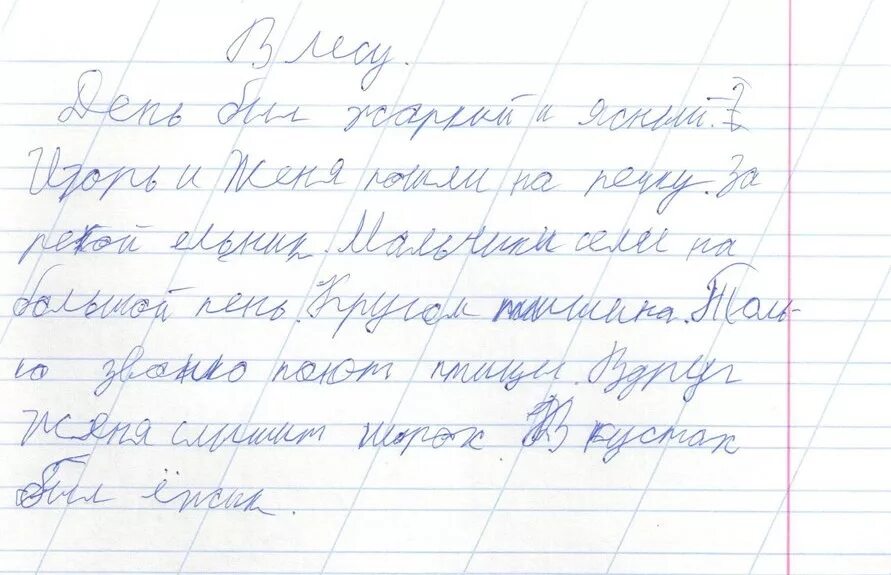 В лесу.
День был жаркий и ясный.
Игорь и Женя пошли на речку. За
рекой ельник. Мальчики сели на
большой пень. Кругом тишина. Толь-
ко звонко поют птицы. Вдруг
Женя слышит шорох. В кустах
был ёжык.